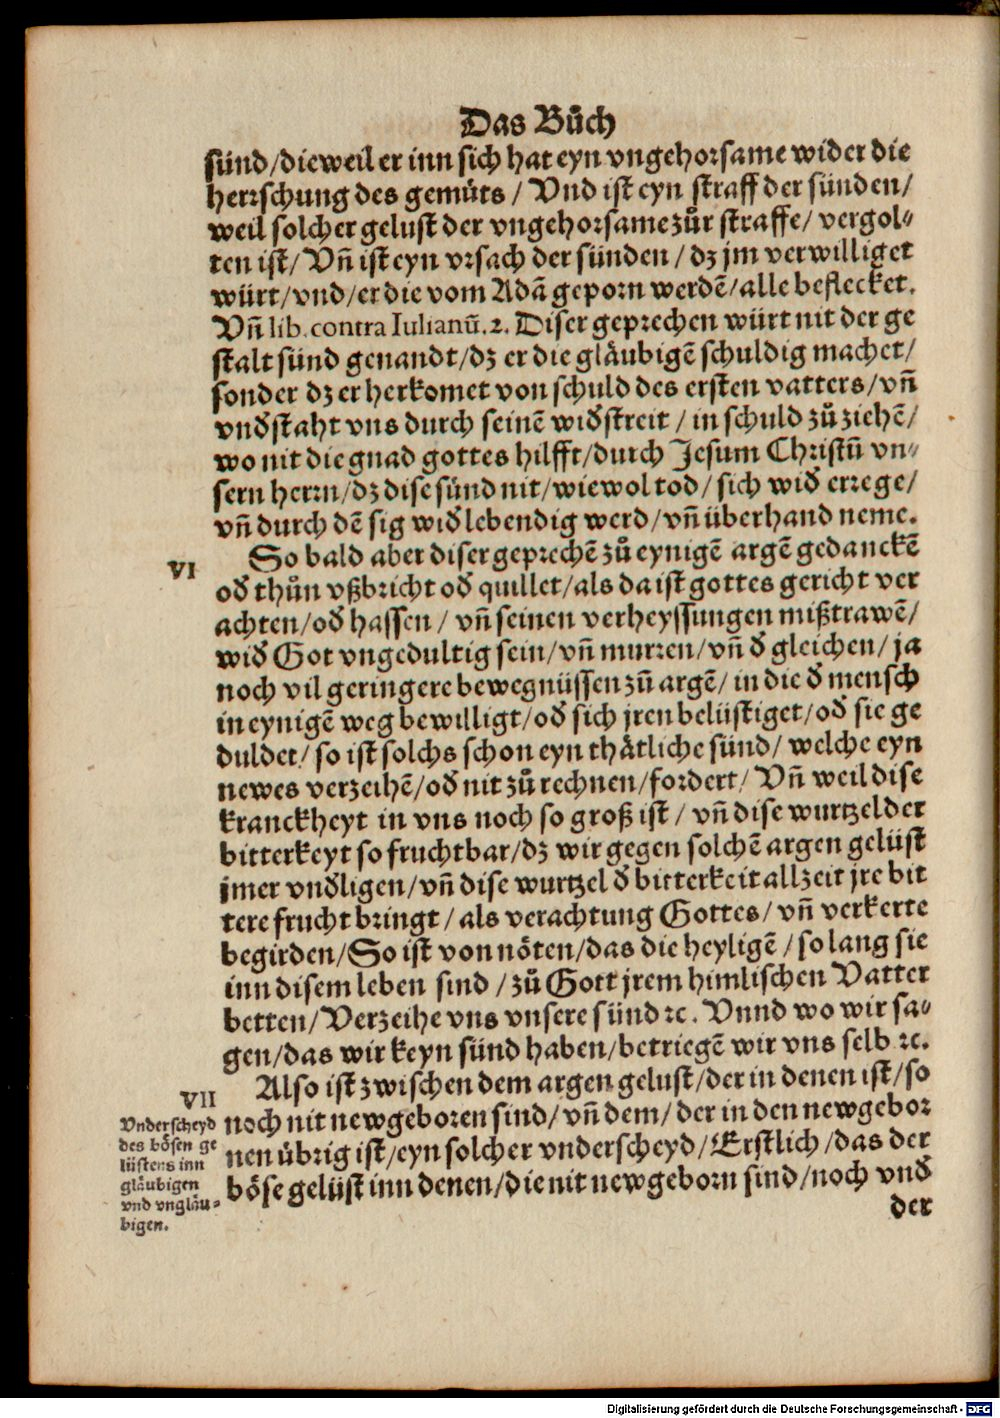 Das Bůch
sünd/dieweil er inn sich hat eyn vngehorsame wider die
herrschung des gemůts / Vnd ist eyn straff der sünden/
weil solcher gelust der vngehorsame zůr straffe/ vergol-
ten ist/ Vñ ist eyn vrsach der sünden / dz jm verwilliget
würt/vnd/er die vom Adā geporn werdē/alle beflecket.
Vñ lib. contra Iulianū.2. Diser geprechen würt nit der ge
stalt sünd genandt/dz er die gläubigē schuldig machet/
sonder dz er herkomet von schuld des ersten vatters/vñ
vnđstaht vns durch seinē wiđstreit / in schuld zů ziehē/
wo nit die gnad gottes hilfft/durch Jesum Christū vn-
sern herrn/dz dise sünd nit/wiewol tod/ sich wiđ errege/
vñ durch dē sig wiđ lebendig werd/vñ überhand neme.
VI
So bald aber diser geprechē zů eynigē argē gedanckē
ođ thůn vßbricht ođ quillet/als da ist gottes gericht ver
achten/ođ hassen / vñ seinen verheyssungen mißtrawē/
wiđ Got vngedultig sein/vñ murren/vñ đ gleichen/ ja
noch vil geringere bewegnüssen zů argē/ in die đ mensch
in eynigē weg bewilligt/ođ sich jren belüstiget/ođ sie ge
duldet/ so ist solchs schon eyn thätliche sünd/ welche eyn
newes verzeihē/ođ nit zů rechnen/fordert/ Vñ weil dise
kranckheyt in vns noch so groß ist / vñ dise wurtzel der
bitterkeyt so fruchtbar/dz wir gegen solchē argen gelüst
jmer vnđligen/vñ dise wurtzel đ bitterkeit allzeit jre bit
tere frucht bringt / als verachtung Gottes/ vñ verkerte
begirden/So ist von nöten/das die heyligē / so lang sie
inn disem leben sind / zů Gott jrem himlischen Vatter
betten/Verzeihe vns vnsere sünd ꝛc. Vnnd wo wir sa-
gen/das wir keyn sünd haben/betriegē wir vns selb ꝛc.
VII
Also ist zwischen dem argen gelust/der in denen ist/so
noch nit newgeboren sind/vñ dem/ der in den newgebor
nen übrig ist/eyn solcher vnderscheyd/Erstlich/das der
böse gelüst inn denen/die nit newgeborn sind/noch vnđ
der
Vnderscheyd
des bösen ge
lüstens inn
gläubigen
vnd vngläu-
bigen.
Digitalisierung gefördert durch die Deutsche Forschungsgemeinschaft - DFG